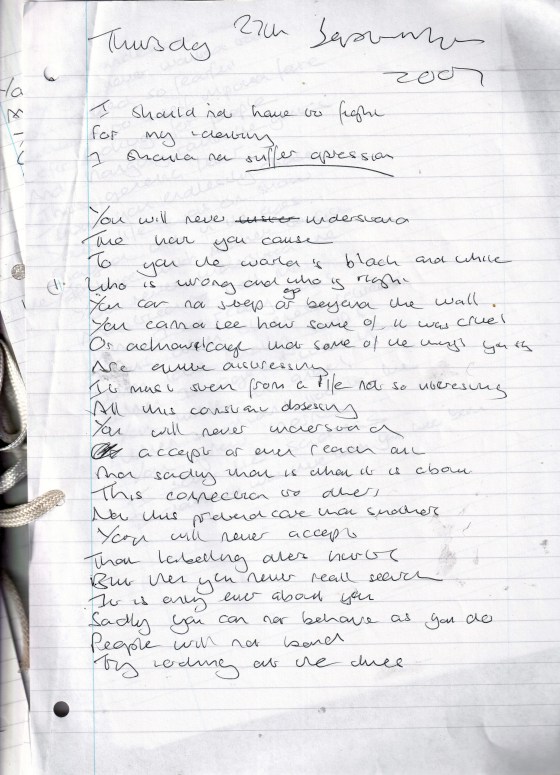 Thursday 27th September
2007
I should not have to fight
for my identity
I should not suffer opression
You will never understand
The hurt you cause
To you the world is black and white
1. Who is wrong and who is right
You can not step or go beyond the wall
You cannot see how some of it was cruel
Or acknowledge that some of the things you say
Are quite distressing
It must stem from a life not so interesting
All this constant obsessing
You will never understand
accept or even reach out
That sadly that is what it is about
This connection to others
Not this pretend care that smothers
You will never accept
That labelling others hurts
But then you never really search
It is only ever about you
Sadly you can not behave as you do
People will not bend
Try looking at the